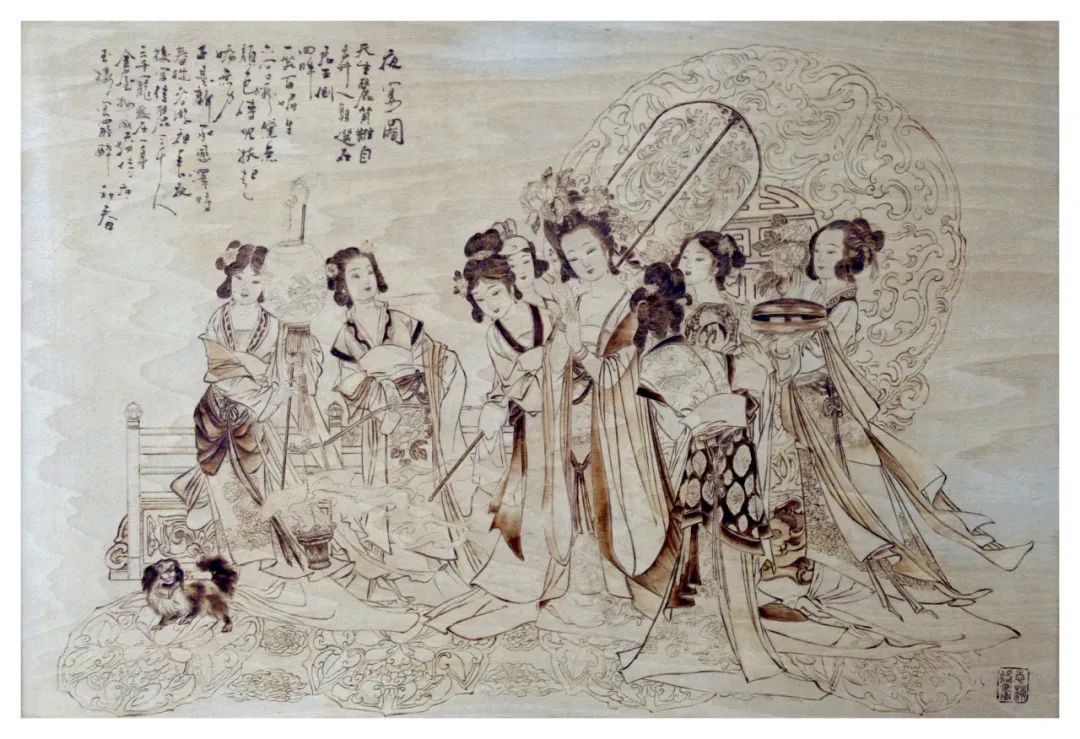 夜宴圖
天生麗質難自
棄一朝選在
君王側
回眸
一笑百媚生
六宮粉黛無
顏色侍兒扶起
嬌無力
是新承恩澤時
春從春游夜專夜
後宮佳麗三千人
三千寵愛在一身
金屋妝成嬌侍夜
玉樓宴罷醉和春